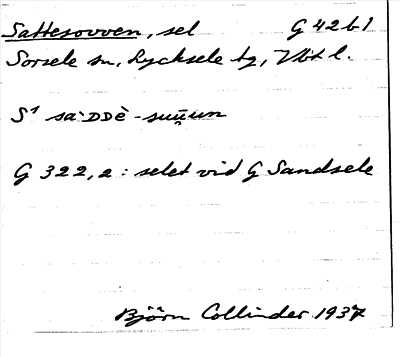 Sattesovven, sel G 42 b 1
Sorsele sn, Lycksele tg, Vbt l.
S¹ sa`DDè-suu̯un
G 322,2: selet vid G Sandsele
Björn Collinder 1937